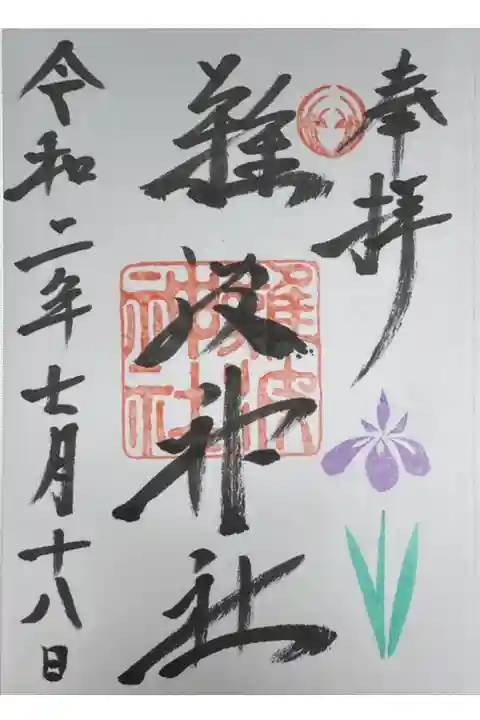 奉拝
難波神社
難波
神社
令和二年七月十八日